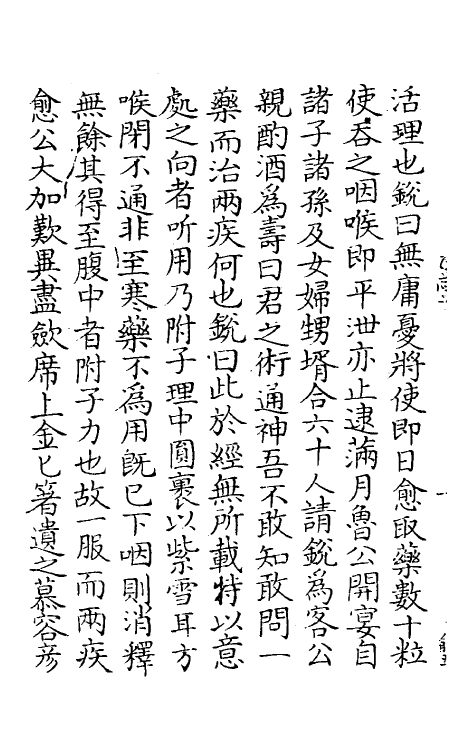 活理也銳曰無庸憂將使即日愈取藥數十粒
使吞之咽喉即平泄亦止逮滿月魯公開宴自
諸子諸孫及女婦甥壻合六十人請銳為客公
親酌酒為壽曰君之術通神吾不敢知敢問一
藥而治兩疾何也銳曰此於經無所載特以意
處之向者所用乃附子理中圓裹以紫雪耳方
喉閉不通非至寒藥不為用旣已下咽則消釋
無餘其得至腹中者附子力也故一服而兩疾
愈公大加歎異盡歛席上金匕箸遺之慕容彦